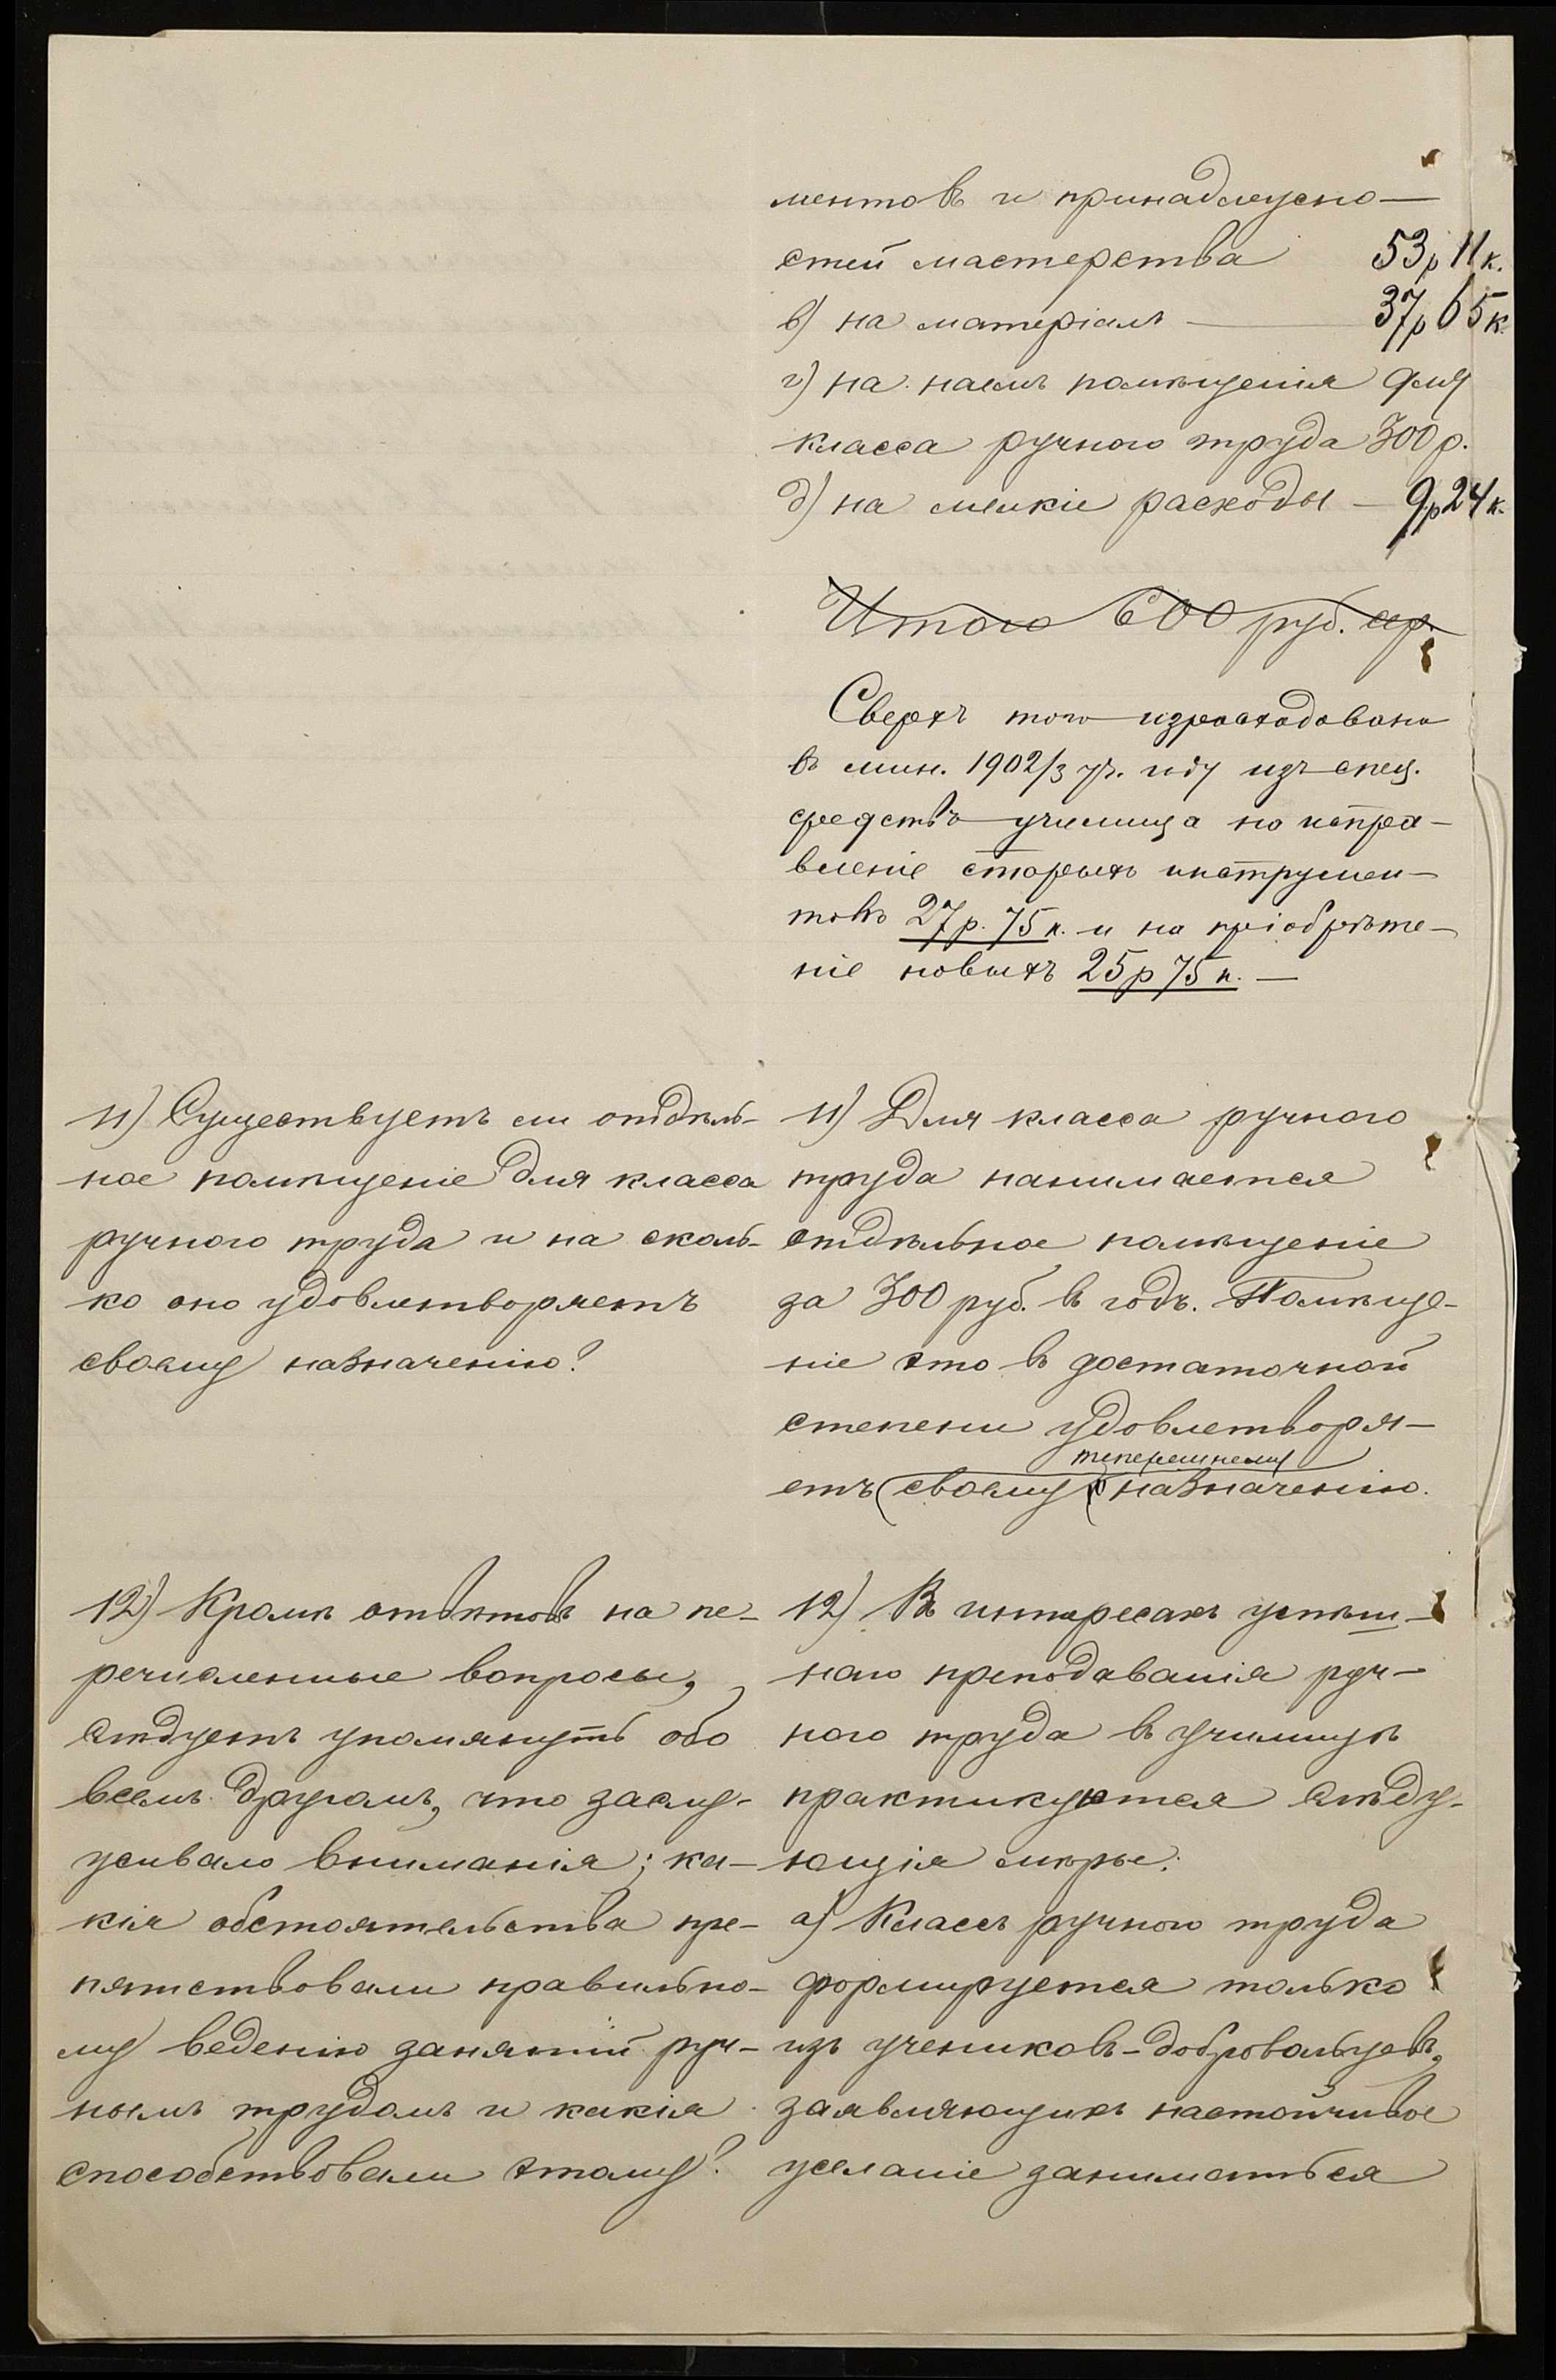 ментовъ и принадлежно-
стей мастерства 53р 11к.
в) на матеріалъ — 37р 65к.
г) на наемъ помѣщенія для
класса ручного труда 300р.
д) на мелкіе расходы — 9р 24к.
Итого 600 руб. ср.
Сверхъ того израсходовано
въ мин. 1902/3 уч. году изъ спец.
средствъ училища на исправ-
вленіе старыхъ инструмен-
товъ 27р. 75к. и на пріобрѣте-
ніе новыхъ 25р 75к. —
11) Существуетъ ли отдѣль-
ное помѣщеніе для класса
ручного труда и на сколь-
ко оно удовлетворяетъ
своему назначенію?
11) Для класса ручного
труда нанимается
отдѣльное помѣщеніе
за 300 руб. въ годъ. Помѣще-
ніе это въ достаточной
степени удовлетворя-
теперешнему
етъ своему назначенію.
12) Кромѣ отвѣтовъ на пе-
речисленные вопросы,
слѣдуетъ упомянуть обо
всемъ другомъ, что заслу-
живало вниманія; ка-
кія обстоятельства пре-
пятствовали правильно-
му веденію занятій руч-
нымъ трудомъ и какія
способствовали этому?
12) Въ интересахъ успѣш-
наго преподаванія руч-
ного труда въ училищѣ
практикуются слѣду-
ющія мѣры:
а) Классъ ручного труда
формируется только
изъ учениковъ-добровольцевъ,
заявляющихъ настойчивое
желаніе заниматься